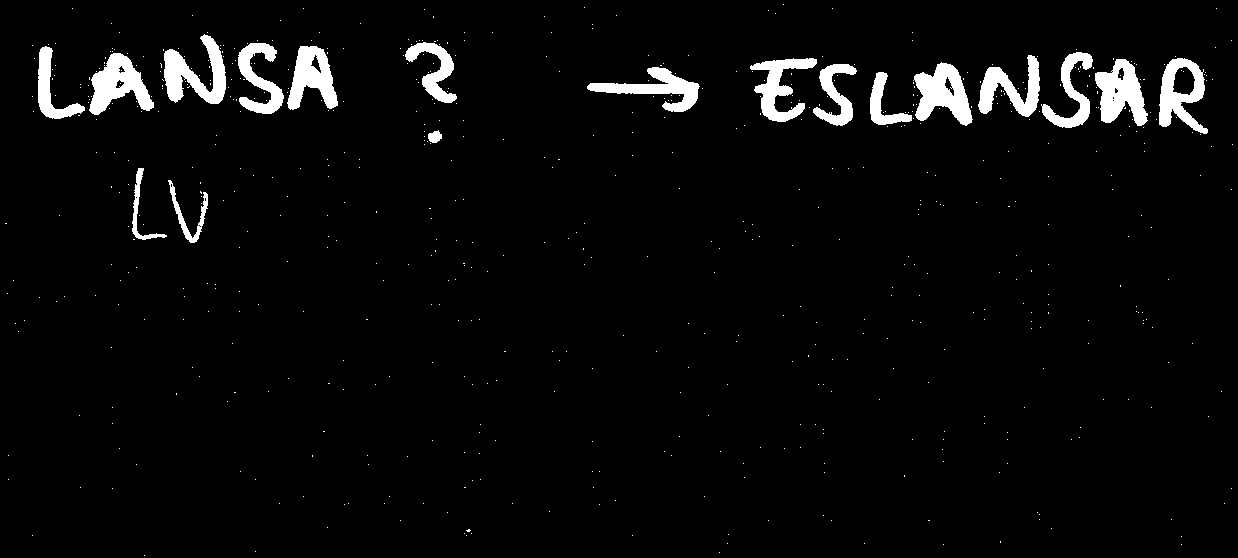 LANSA ? → ESLANSAR
LV